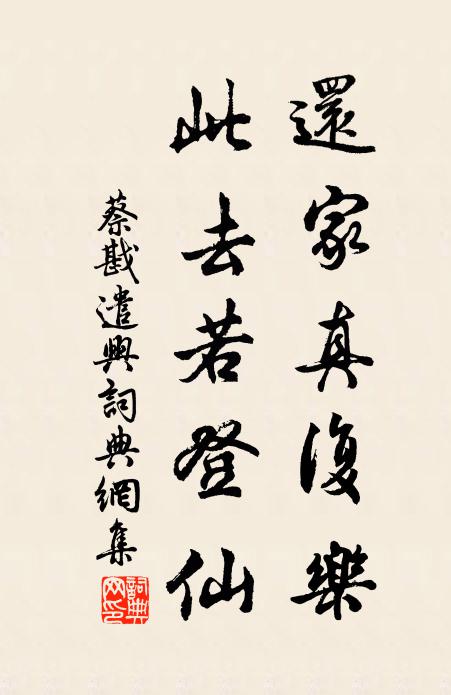 還家真復樂
此去若登仙
蔡戡遣興詞典網集
詞典網印